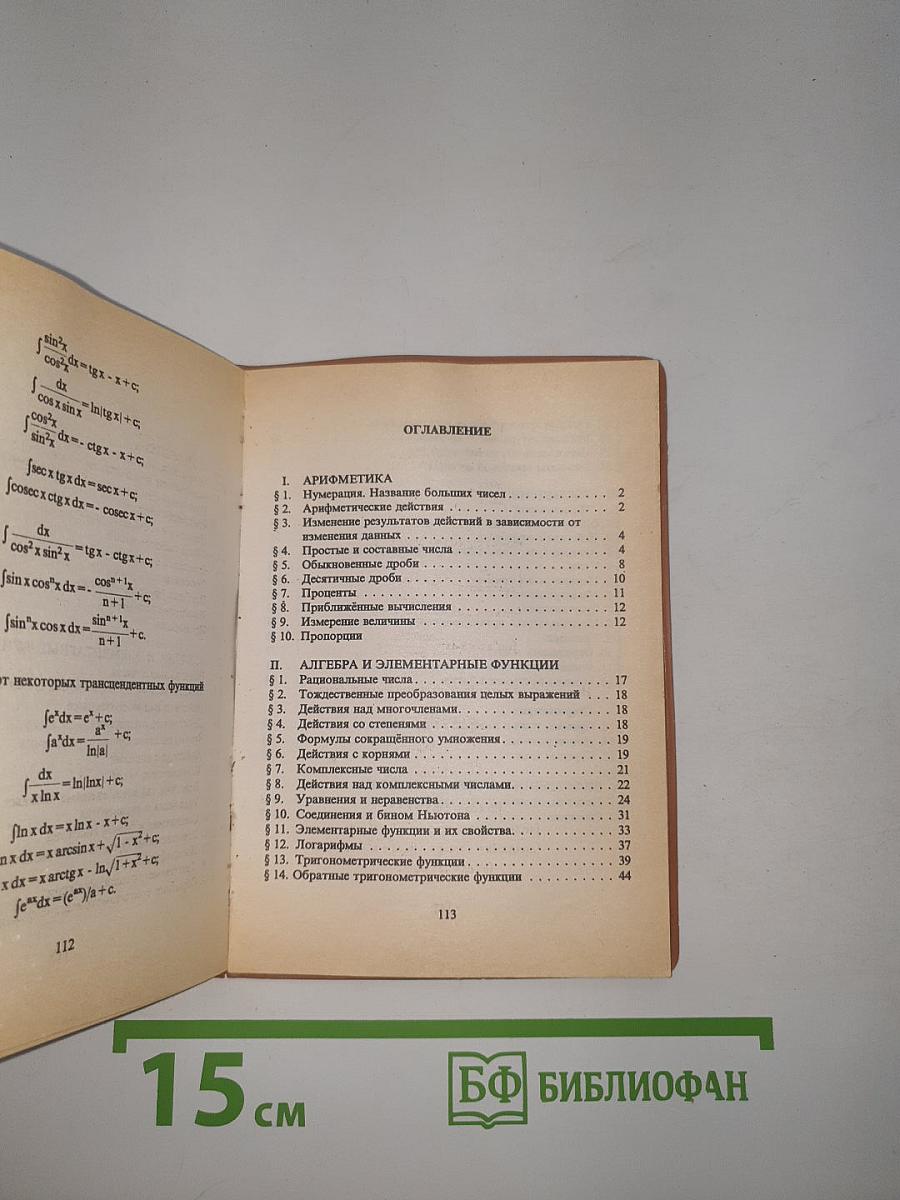 ∫ sin²x/cos²x dx = tg x - x + c;
∫ dx/cos x sin x = ln|tg x| + c;
∫ cos²x/sin²x dx = - ctg x - x + c;
∫sec x tg x dx = sec x + c;
∫cosec x ctg x dx = - cosec x + c;
∫ dx/cos²x sin²x = tg x - ctg x + c;
∫sin x cosⁿx dx = - cosⁿ⁺¹x/n+1 + c;
∫sinⁿx cos x dx = sinⁿ⁺¹x/n+1 + c.
от некоторых трансцендентных функций
∫eˣdx = eˣ + c;
∫aˣdx = aˣ/ln|a| + c;
∫ dx/x ln x = ln|lnx| + c;
∫ln x dx = x ln x - x + c;
n x dx = x arcsin x + √1 - x² + c;
x dx = x arctg x - ln√1 + x² + c;
∫eᵃˣdx = (eᵃˣ)/a + c.
112
ОГЛАВЛЕНИЕ
I. АРИФМЕТИКА
§ 1. Нумерация. Название больших чисел . . . . . . . . . . . 2
§ 2. Арифметические действия . . . . . . . . . . . . . . . . . 2
§ 3. Изменение результатов действий в зависимости от
изменения данных . . . . . . . . . . . . . . . . . . . . . . 4
§ 4. Простые и составные числа . . . . . . . . . . . . . . . . 4
§ 5. Обыкновенные дроби . . . . . . . . . . . . . . . . . . . . 8
§ 6. Десятичные дроби . . . . . . . . . . . . . . . . . . . . . 10
§ 7. Проценты . . . . . . . . . . . . . . . . . . . . . . . . . 11
§ 8. Приближённые вычисления . . . . . . . . . . . . . . . . 12
§ 9. Измерение величины . . . . . . . . . . . . . . . . . . . . 12
§ 10. Пропорции
II. АЛГЕБРА И ЭЛЕМЕНТАРНЫЕ ФУНКЦИИ
§ 1. Рациональные числа . . . . . . . . . . . . . . . . . . . . 17
§ 2. Тождественные преобразования целых выражений . . . 18
§ 3. Действия над многочленами . . . . . . . . . . . . . . . . 18
§ 4. Действия со степенями . . . . . . . . . . . . . . . . . . 18
§ 5. Формулы сокращённого умножения . . . . . . . . . . . . 19
§ 6. Действия с корнями . . . . . . . . . . . . . . . . . . . . 19
§ 7. Комплексные числа . . . . . . . . . . . . . . . . . . . . 21
§ 8. Действия над комплексными числами . . . . . . . . . . . 22
§ 9. Уравнения и неравенства . . . . . . . . . . . . . . . . . 24
§ 10. Соединения и бином Ньютона . . . . . . . . . . . . . . . 31
§ 11. Элементарные функции и их свойства . . . . . . . . . . . 33
§ 12. Логарифмы . . . . . . . . . . . . . . . . . . . . . . . . 37
§ 13. Тригонометрические функции . . . . . . . . . . . . . . . 39
§ 14. Обратные тригонометрические функции . . . . . . . . . . 44
113
15 см
БФ БИБЛИОФАН